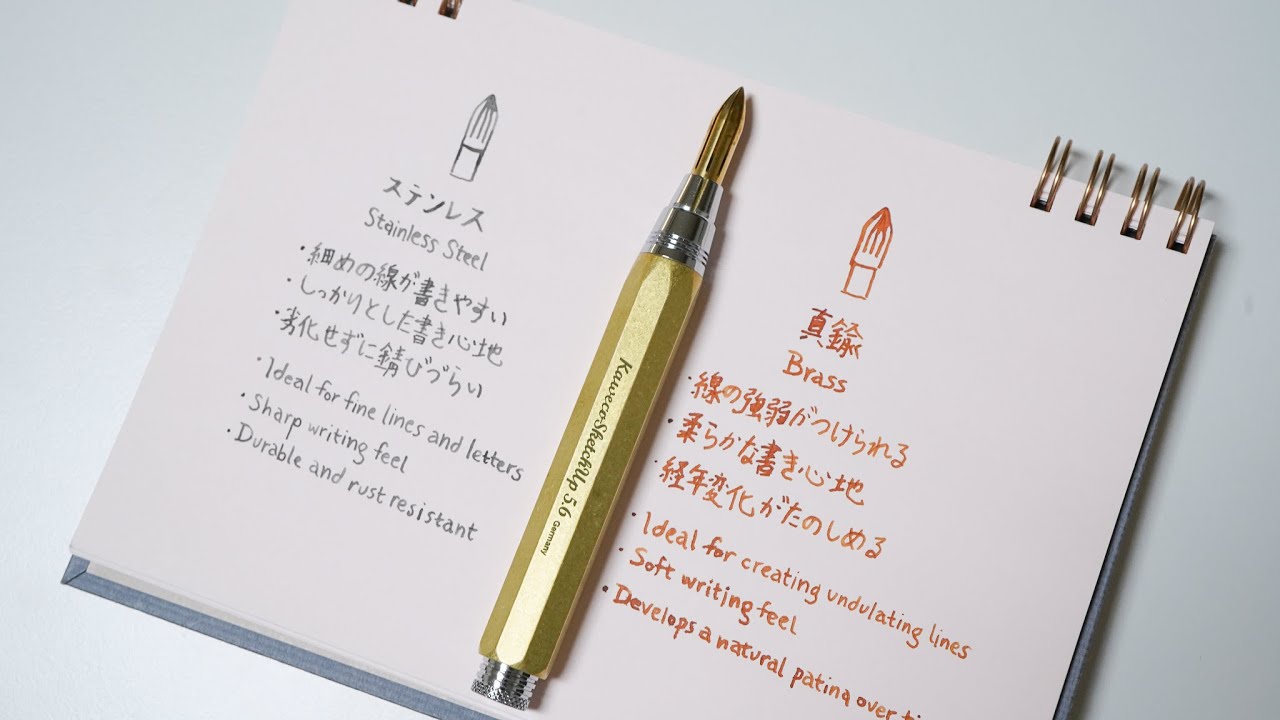 ステンレス
Stainless Steel
・細めの線が書きやすい
・しっかりとした書き心地
・劣化せずに錆びづらい
・Ideal for fine lines and letters
・Sharp writing feel
・Durable and rust resistant
Kaweco-SketchUp 5.6 Germany
真鍮
Brass
・線の強弱がつけられる
・柔らかな書き心地
・経年変化がたのしめる
・Ideal for creating undulating lines
・Soft writing feel
・Develops a natural patina over